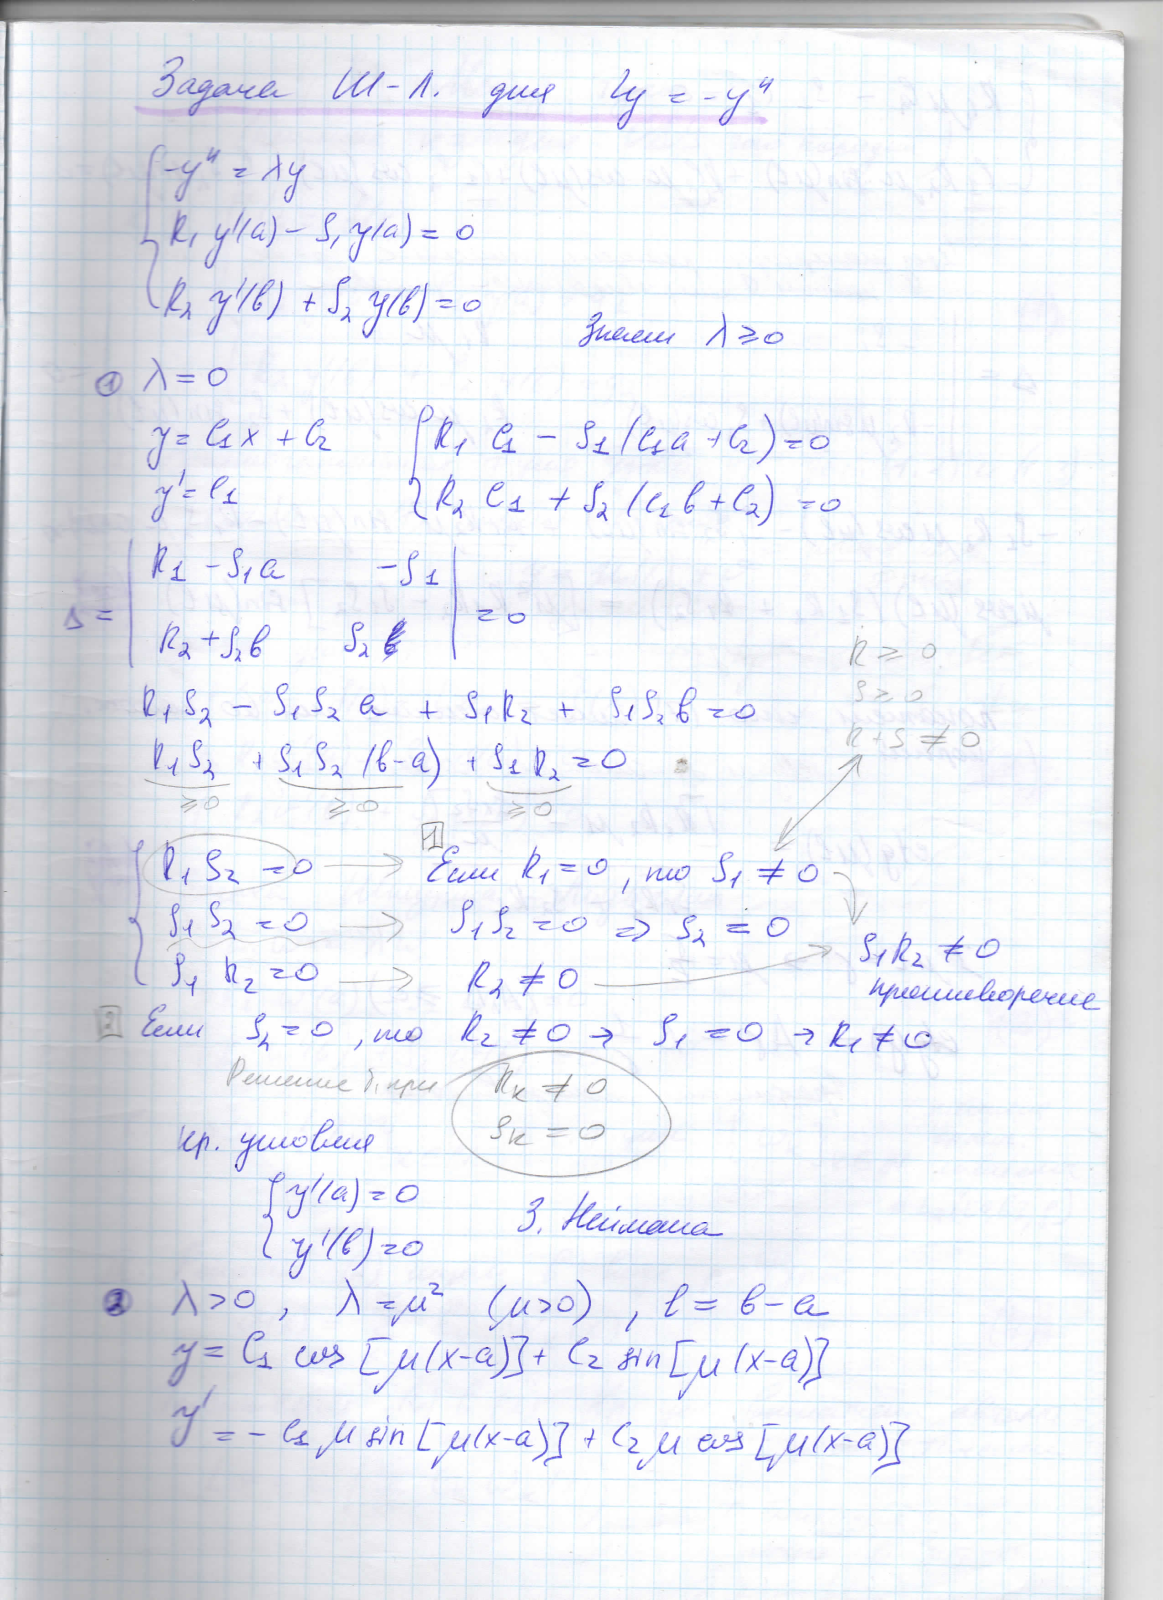 Задача Ш-Л. для Ly = -y''
-y'' = λy
R₁ y'(a) - S₁ y(a) = 0
R₂ y'(b) + S₂ y(b) = 0
Знаем λ ≥ 0
① λ = 0
y = C₁x + C₂
R₁ C₁ - S₁ (C₁a + C₂) = 0
y' = C₁
R₂ C₁ + S₂ (C₁b + C₂) = 0
Δ = | R₁ - S₁a   -S₁ |
| R₂ + S₂b   S₂ | = 0
R ≥ 0
S ≥ 0
R + S ≠ 0
R₁S₂ - S₁S₂ a + S₁R₂ + S₁S₂b = 0
R₁S₂ + S₁S₂ (b-a) + S₁R₂ = 0
≥0 ≥0 ≥0
1
R₁S₂ = 0 → Если R₁ = 0, то S₁ ≠ 0
S₁S₂ = 0 → S₁S₂ = 0 ⇒ S₂ = 0
S₁R₂ = 0 → R₂ ≠ 0 → S₁R₂ ≠ 0
противоречие
2 Если S₂ = 0, то R₂ ≠ 0 → S₁ = 0 → R₁ ≠ 0
Решение при Rₖ ≠ 0
Sₖ = 0
кр. условия
y'(a) = 0
y'(b) = 0
З. Неймана
② λ > 0, λ = μ² (μ>0), l = b-a
y = C₁ cos [μ(x-a)] + C₂ sin [μ(x-a)]
y' = -C₁ μ sin [μ(x-a)] + C₂ μ cos [μ(x-a)]